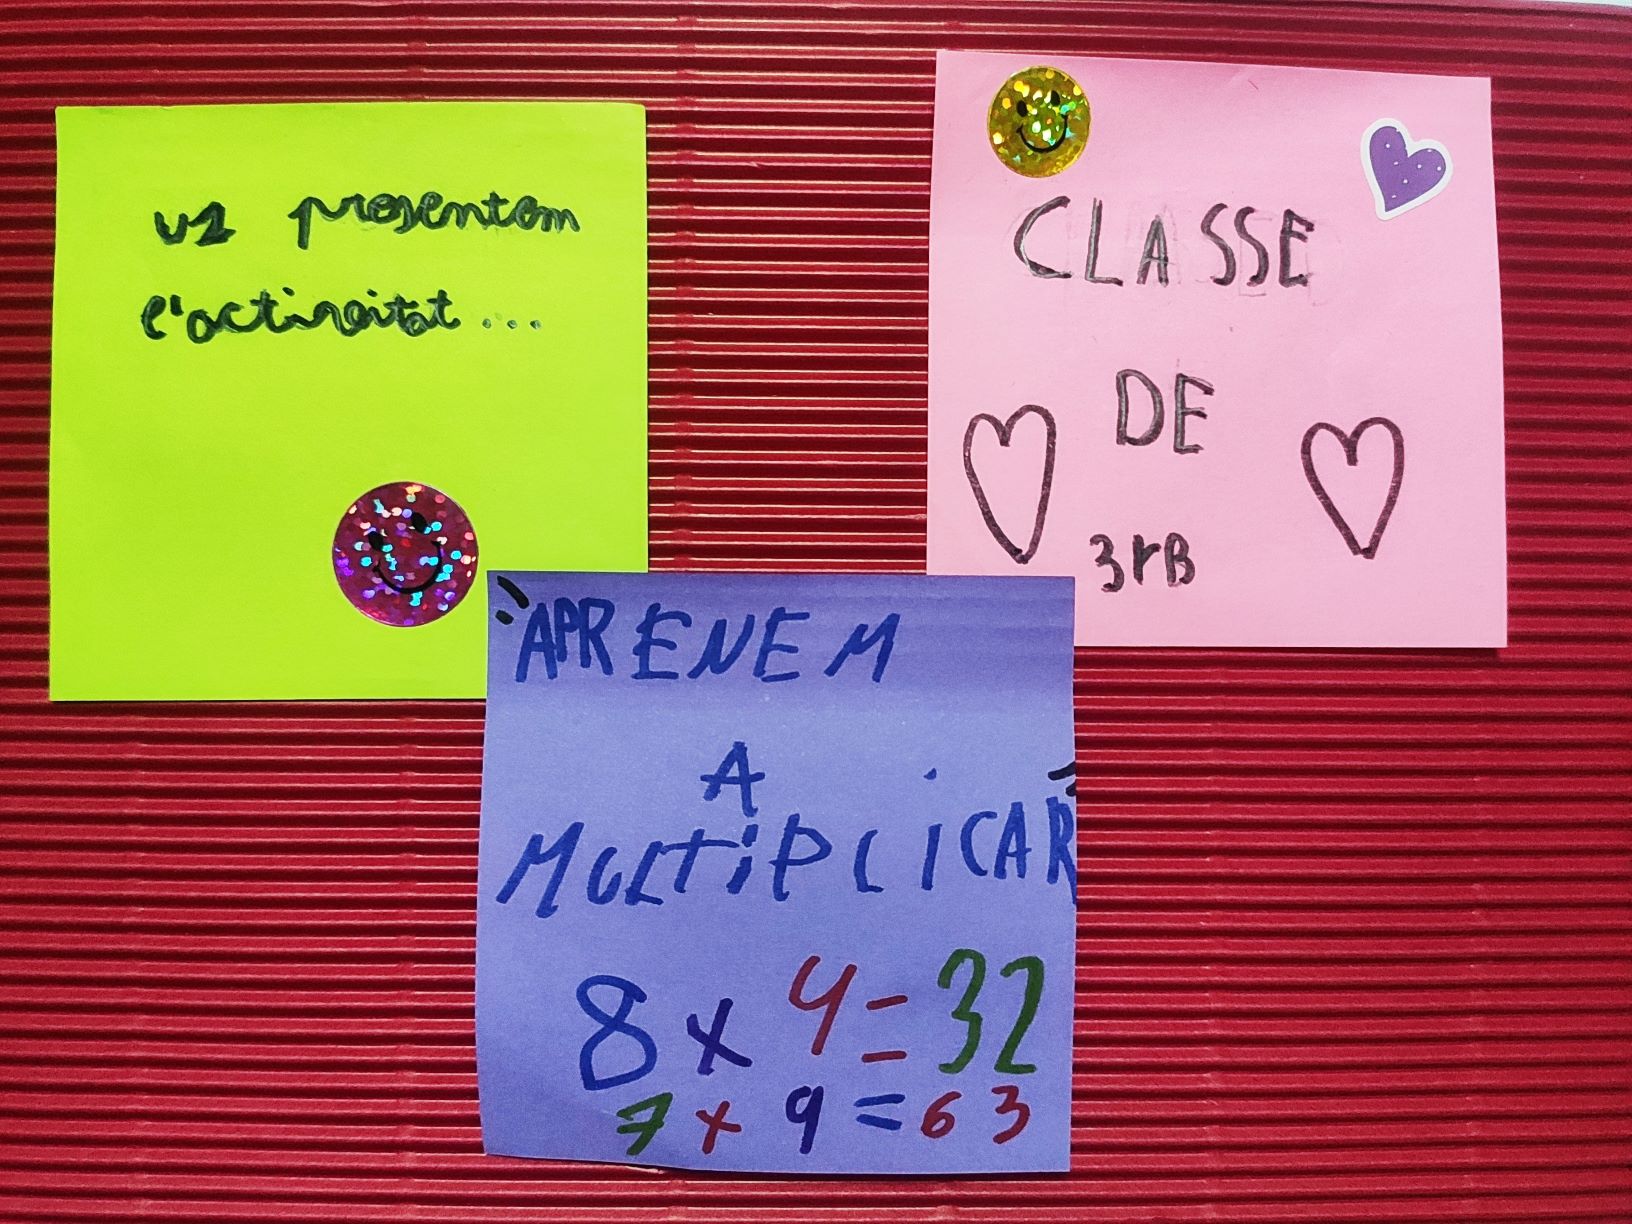 us presentem
l'activitat...
CLASSE
DE
3rB
"APRENEM
A
MULTiPLiCAR"
8 x 4 = 32
7 x 9 = 63